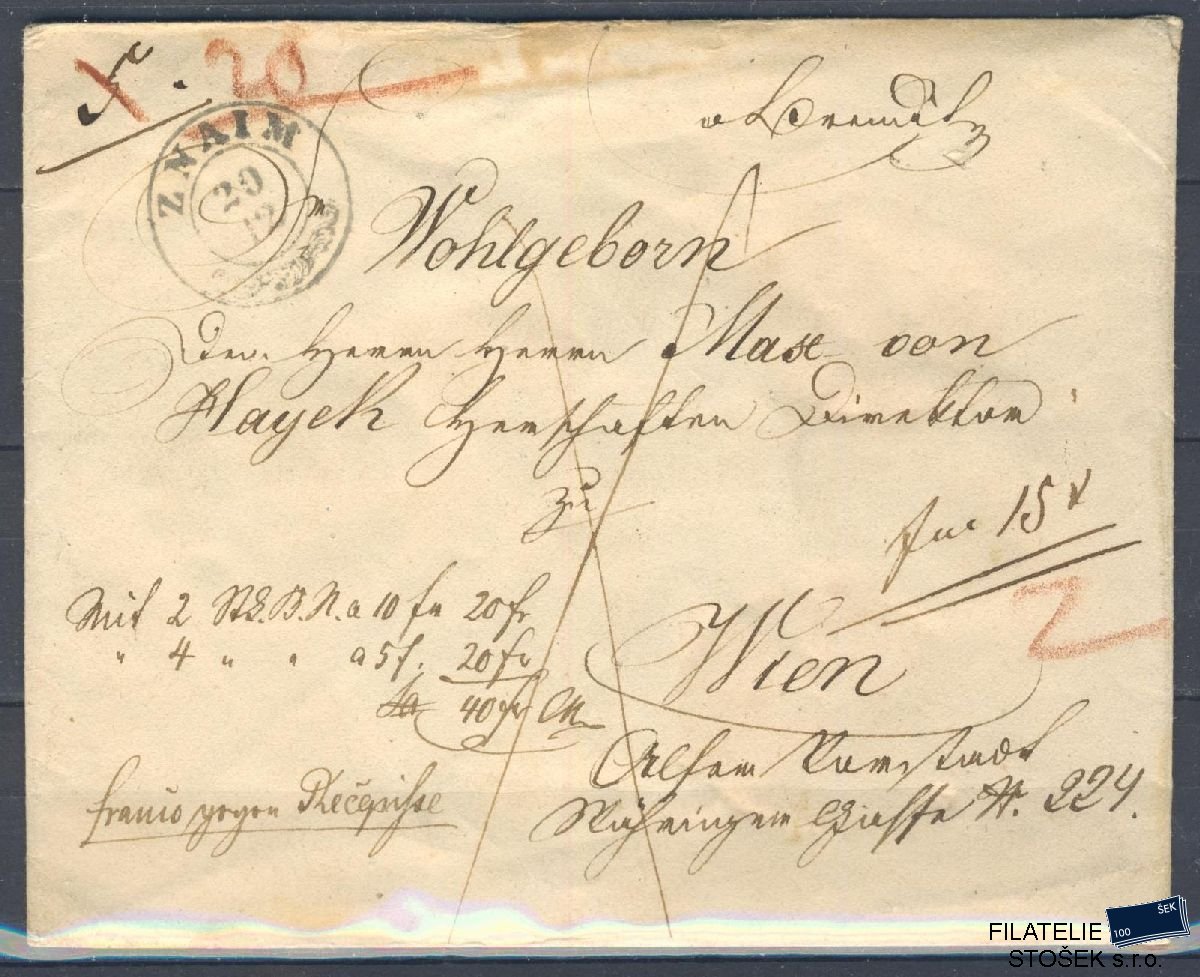 20
ZNAIM
20
12
Wohlgeborn
Den Herrn Herrn Max von
Hayek Herschaften Direktor
zu
15
Mit 2 Stk. B.N. a 10 fr 20 fr
" 4 " " a 5 f. 20 fr
40 fr CM
2
Wien
Alser Vorstadt
Währinger Gasse N. 224.
franco gegen Reçepisse
FILATELIE
STOŠEK s.r.o.
100
ŠEK